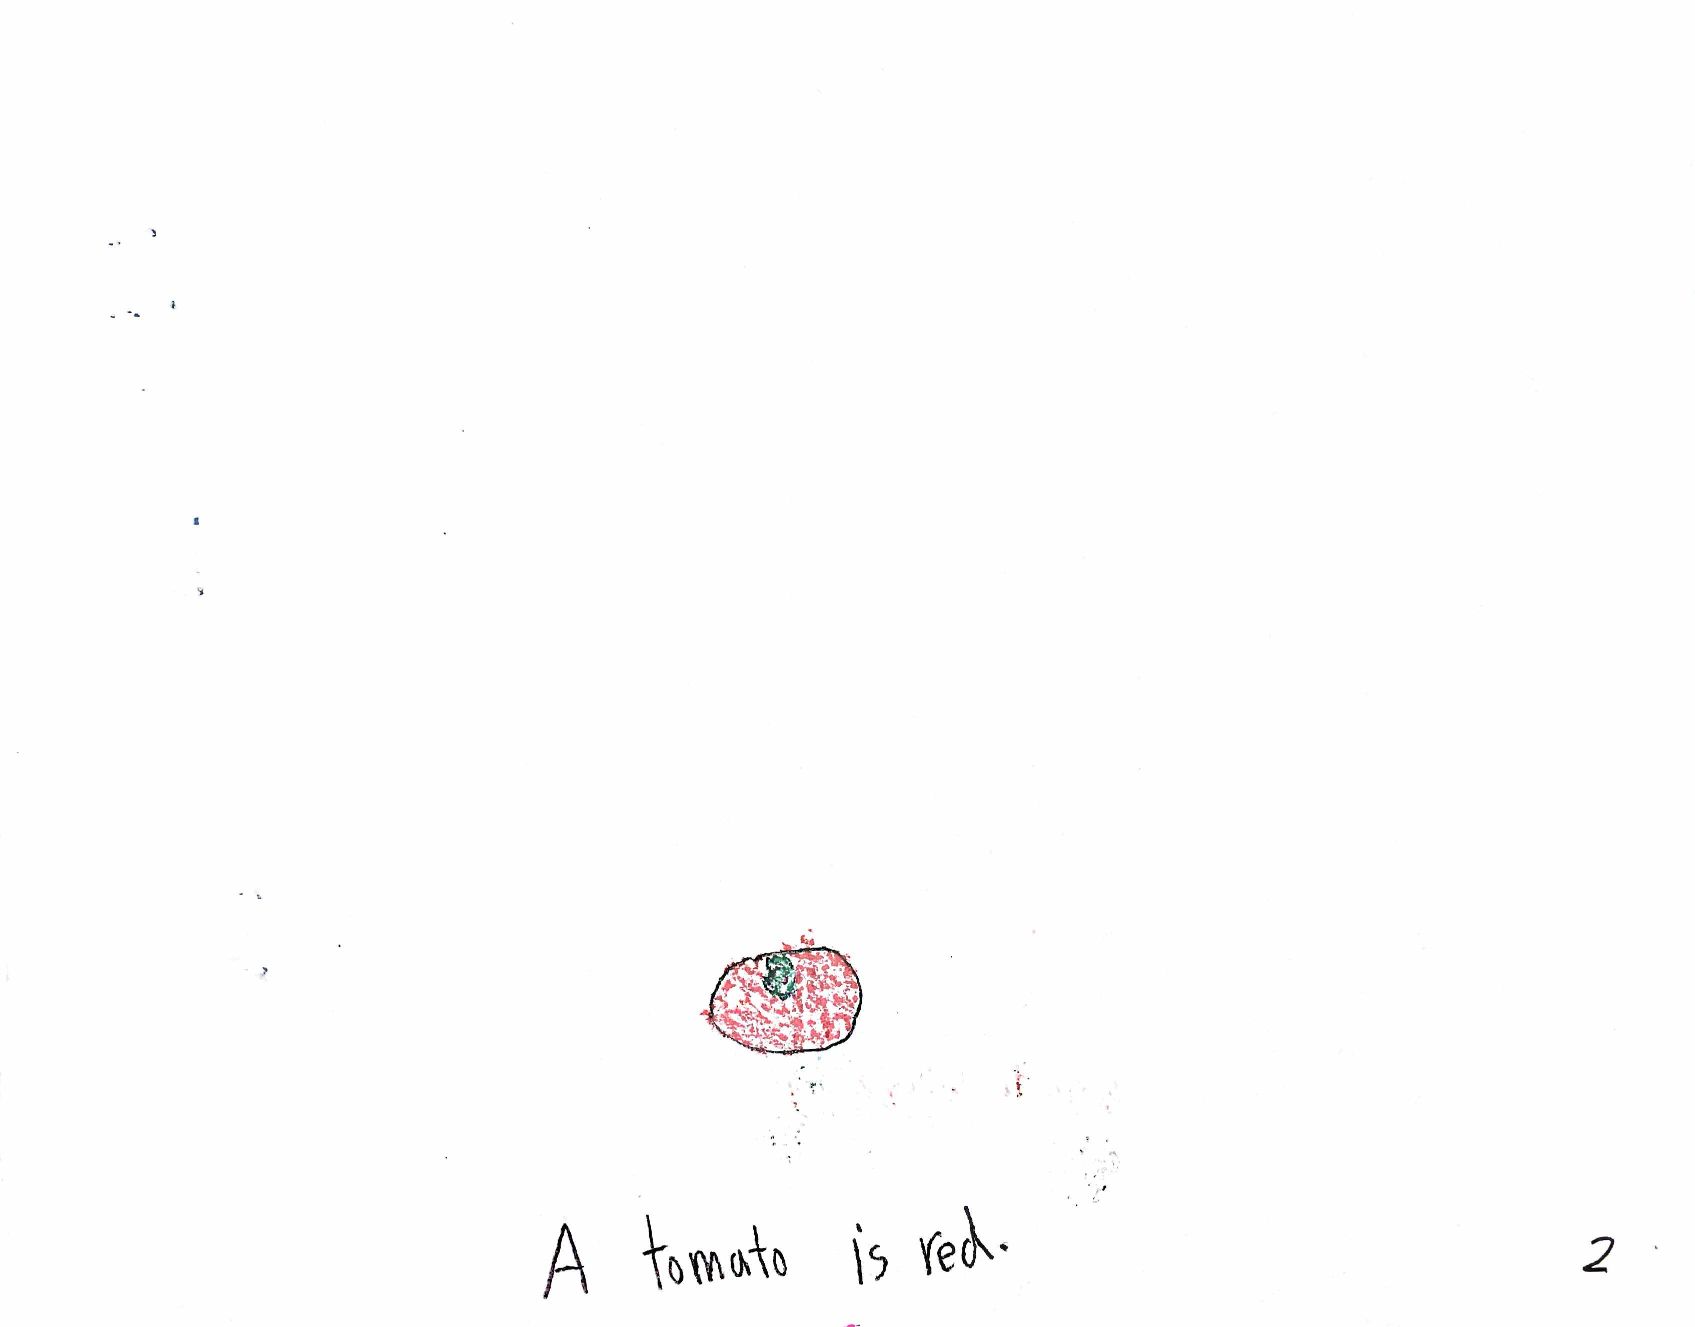 A tomato is red.
2